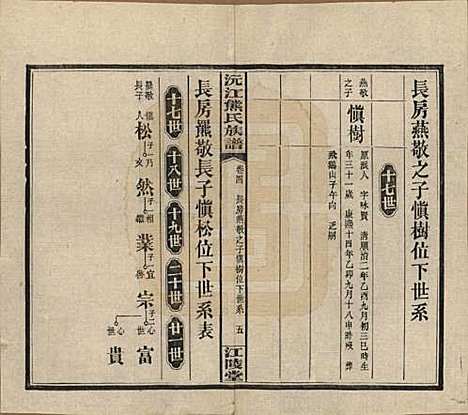 長房燕敬之子愼樹位下世系
十七世
燕敬之子
愼樹
原派人 字咏賢 清順治二年乙酉九月初三巳時生
年三十一歲 康熙十四年乙卯九月十八申時歿 葬
飛鵝山子午向 乏嗣
沅江熊氏族譜
卷四
長房燕敬之子愼樹位下世系
五
江陵堂
長房羆敬長子愼松位下世系表
十七世
十八世
十九世
二十世
廿一世
羆敬長子
愼人
松
子乃玄
然
子相繼
業
子宜啓
宗
子二心世
富
心世
貴